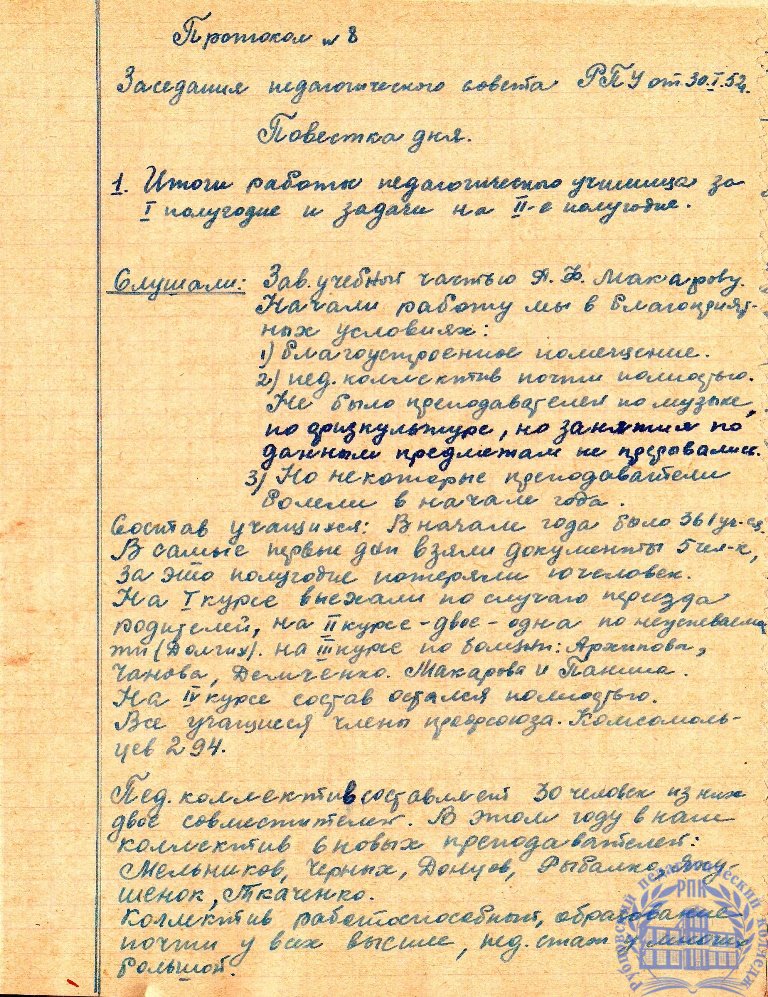 Протокол № 8
Заседания педагогического совета РПУ от 30.I.52г.
Повестка дня.
1. Итоги работы педагогического училища за
I полугодие и задачи на II-е полугодие.
Слушали: Зав. учебной частью А. Ф. Макарову.
Начали работу мы в благоприят-
ных условиях:
1) благоустроенное помещение.
2) пед. коллектив почти полностью.
Не было преподавателей по музыке,
по физкультуре, но занятия по
данным предметам не прерывались.
3) Но некоторые преподаватели
болели в начале года.
Состав учащихся: В начале года было 361 уч-ся.
В самые первые дни взяли документы 5 чел-к,
за это полугодие потеряли 10 человек.
На I курсе выехали по случаю переезда
родителей, на II курсе - двое - одна по неуспеваемо
ти (Долгих). на III курсе по болезни: Архипова,
Чанова, Демченко. Макарова и Панина.
На IV курсе состав остался полностью.
Все учащиеся члены профсоюза. Комсомоль-
цев 294.
Пед. коллектив составляет 30 человек из них
двое совместителей. В этом году в наш
коллектив 6 новых преподавателей:
Мельников, Черных, Донцов, Рыбалко, Яку-
шенок, Ткаченко.
Коллектив работоспособный, образование
почти у всех высшее, пед. стаж у многих
большой.
РПК
Рубцовский педагогический колледж